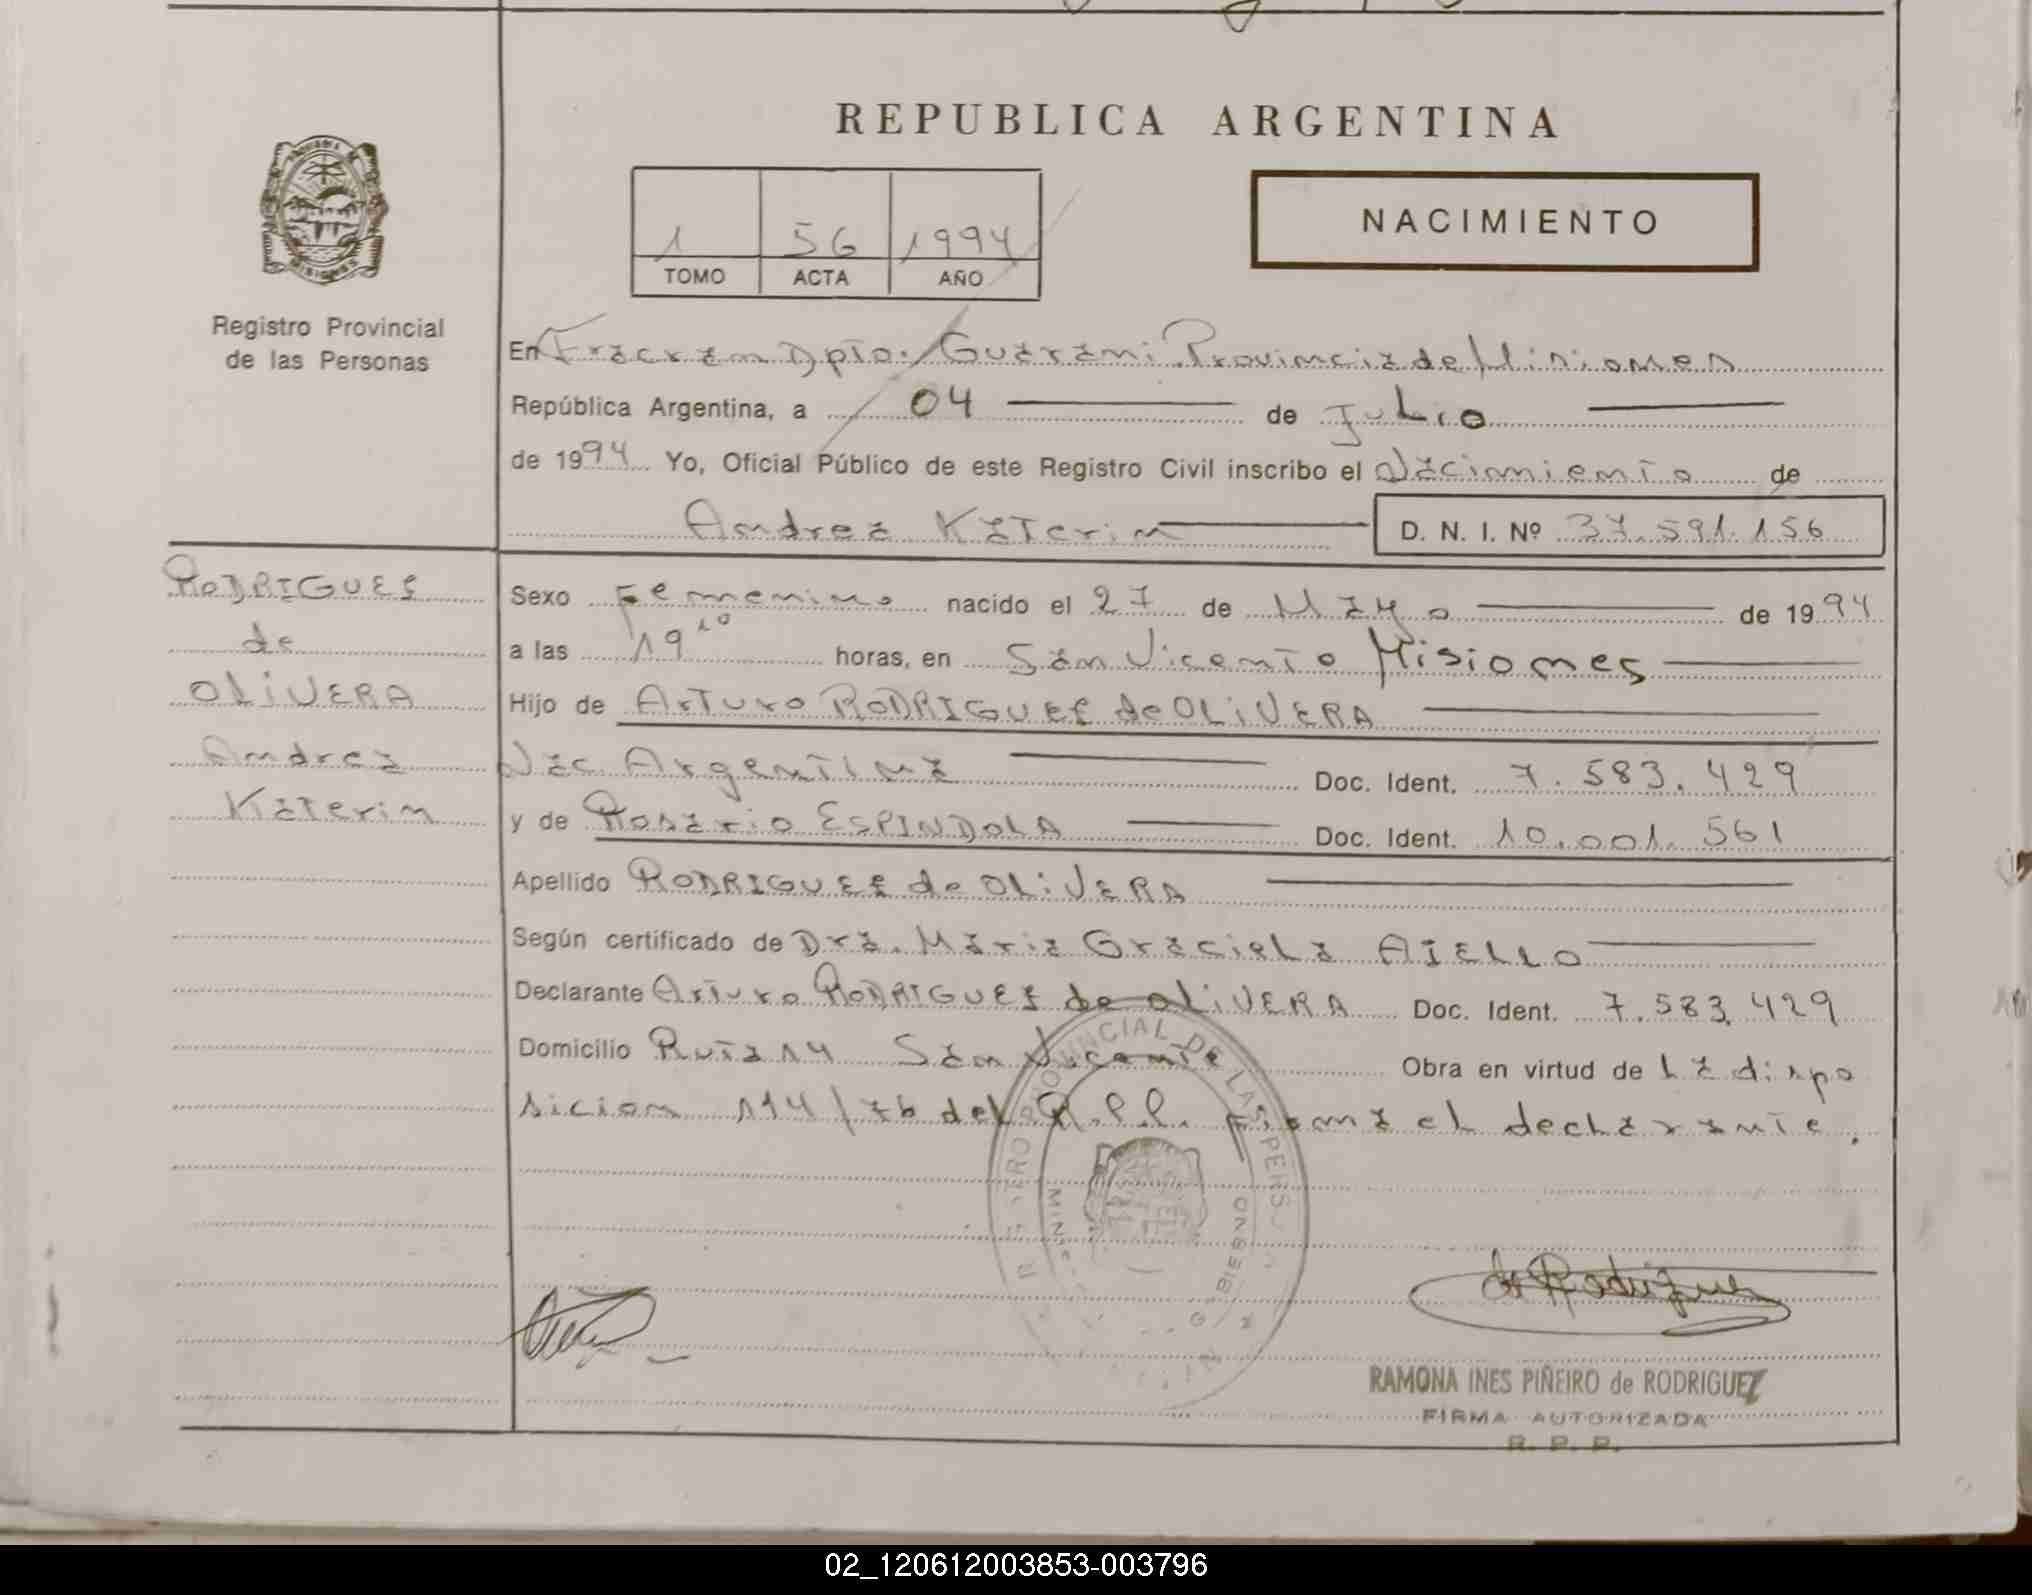 REPUBLICA ARGENTINA
PROVINCIA DE
MISIONES
Registro Provincial
de las Personas
1 56 1994
TOMO ACTA AÑO
NACIMIENTO
En Fracram Dpto. Guaraní Provincia de Misiones
República Argentina, a 04 de Julio
de 1994 Yo, Oficial Público de este Registro Civil inscribo el Nacimiento de
Andrea Katerin D. N. I. Nº 37.591.156
RODRIGUES
de
OLIVERA
Andrea
Katerin
Sexo Femenino nacido el 27 de Mayo de 1994
a las 19 10 horas, en San Vicente Misiones
Hijo de Arturo RODRIGUES de OLIVERA
Nac. Argentina Doc. Ident. 7.583.429
y de Rosario ESPINDOLA Doc. Ident. 10.001.561
Apellido RODRIGUES de OLIVERA
Según certificado de Dra. Maria Graciela AIELLO
Declarante Arturo RODRIGUES de OLIVERA Doc. Ident. 7.583.429
Domicilio Ruta 14 San Vicente Obra en virtud de La dispo
sicion 114/76 del R.P.P. Firma el declarante.
PROVINCIAL DE LAS PERS
de Rodriguez
RAMONA INES PIÑEIRO de RODRIGUEZ
FIRMA AUTORIZADA
R. P. P.
02_120612003853-003796